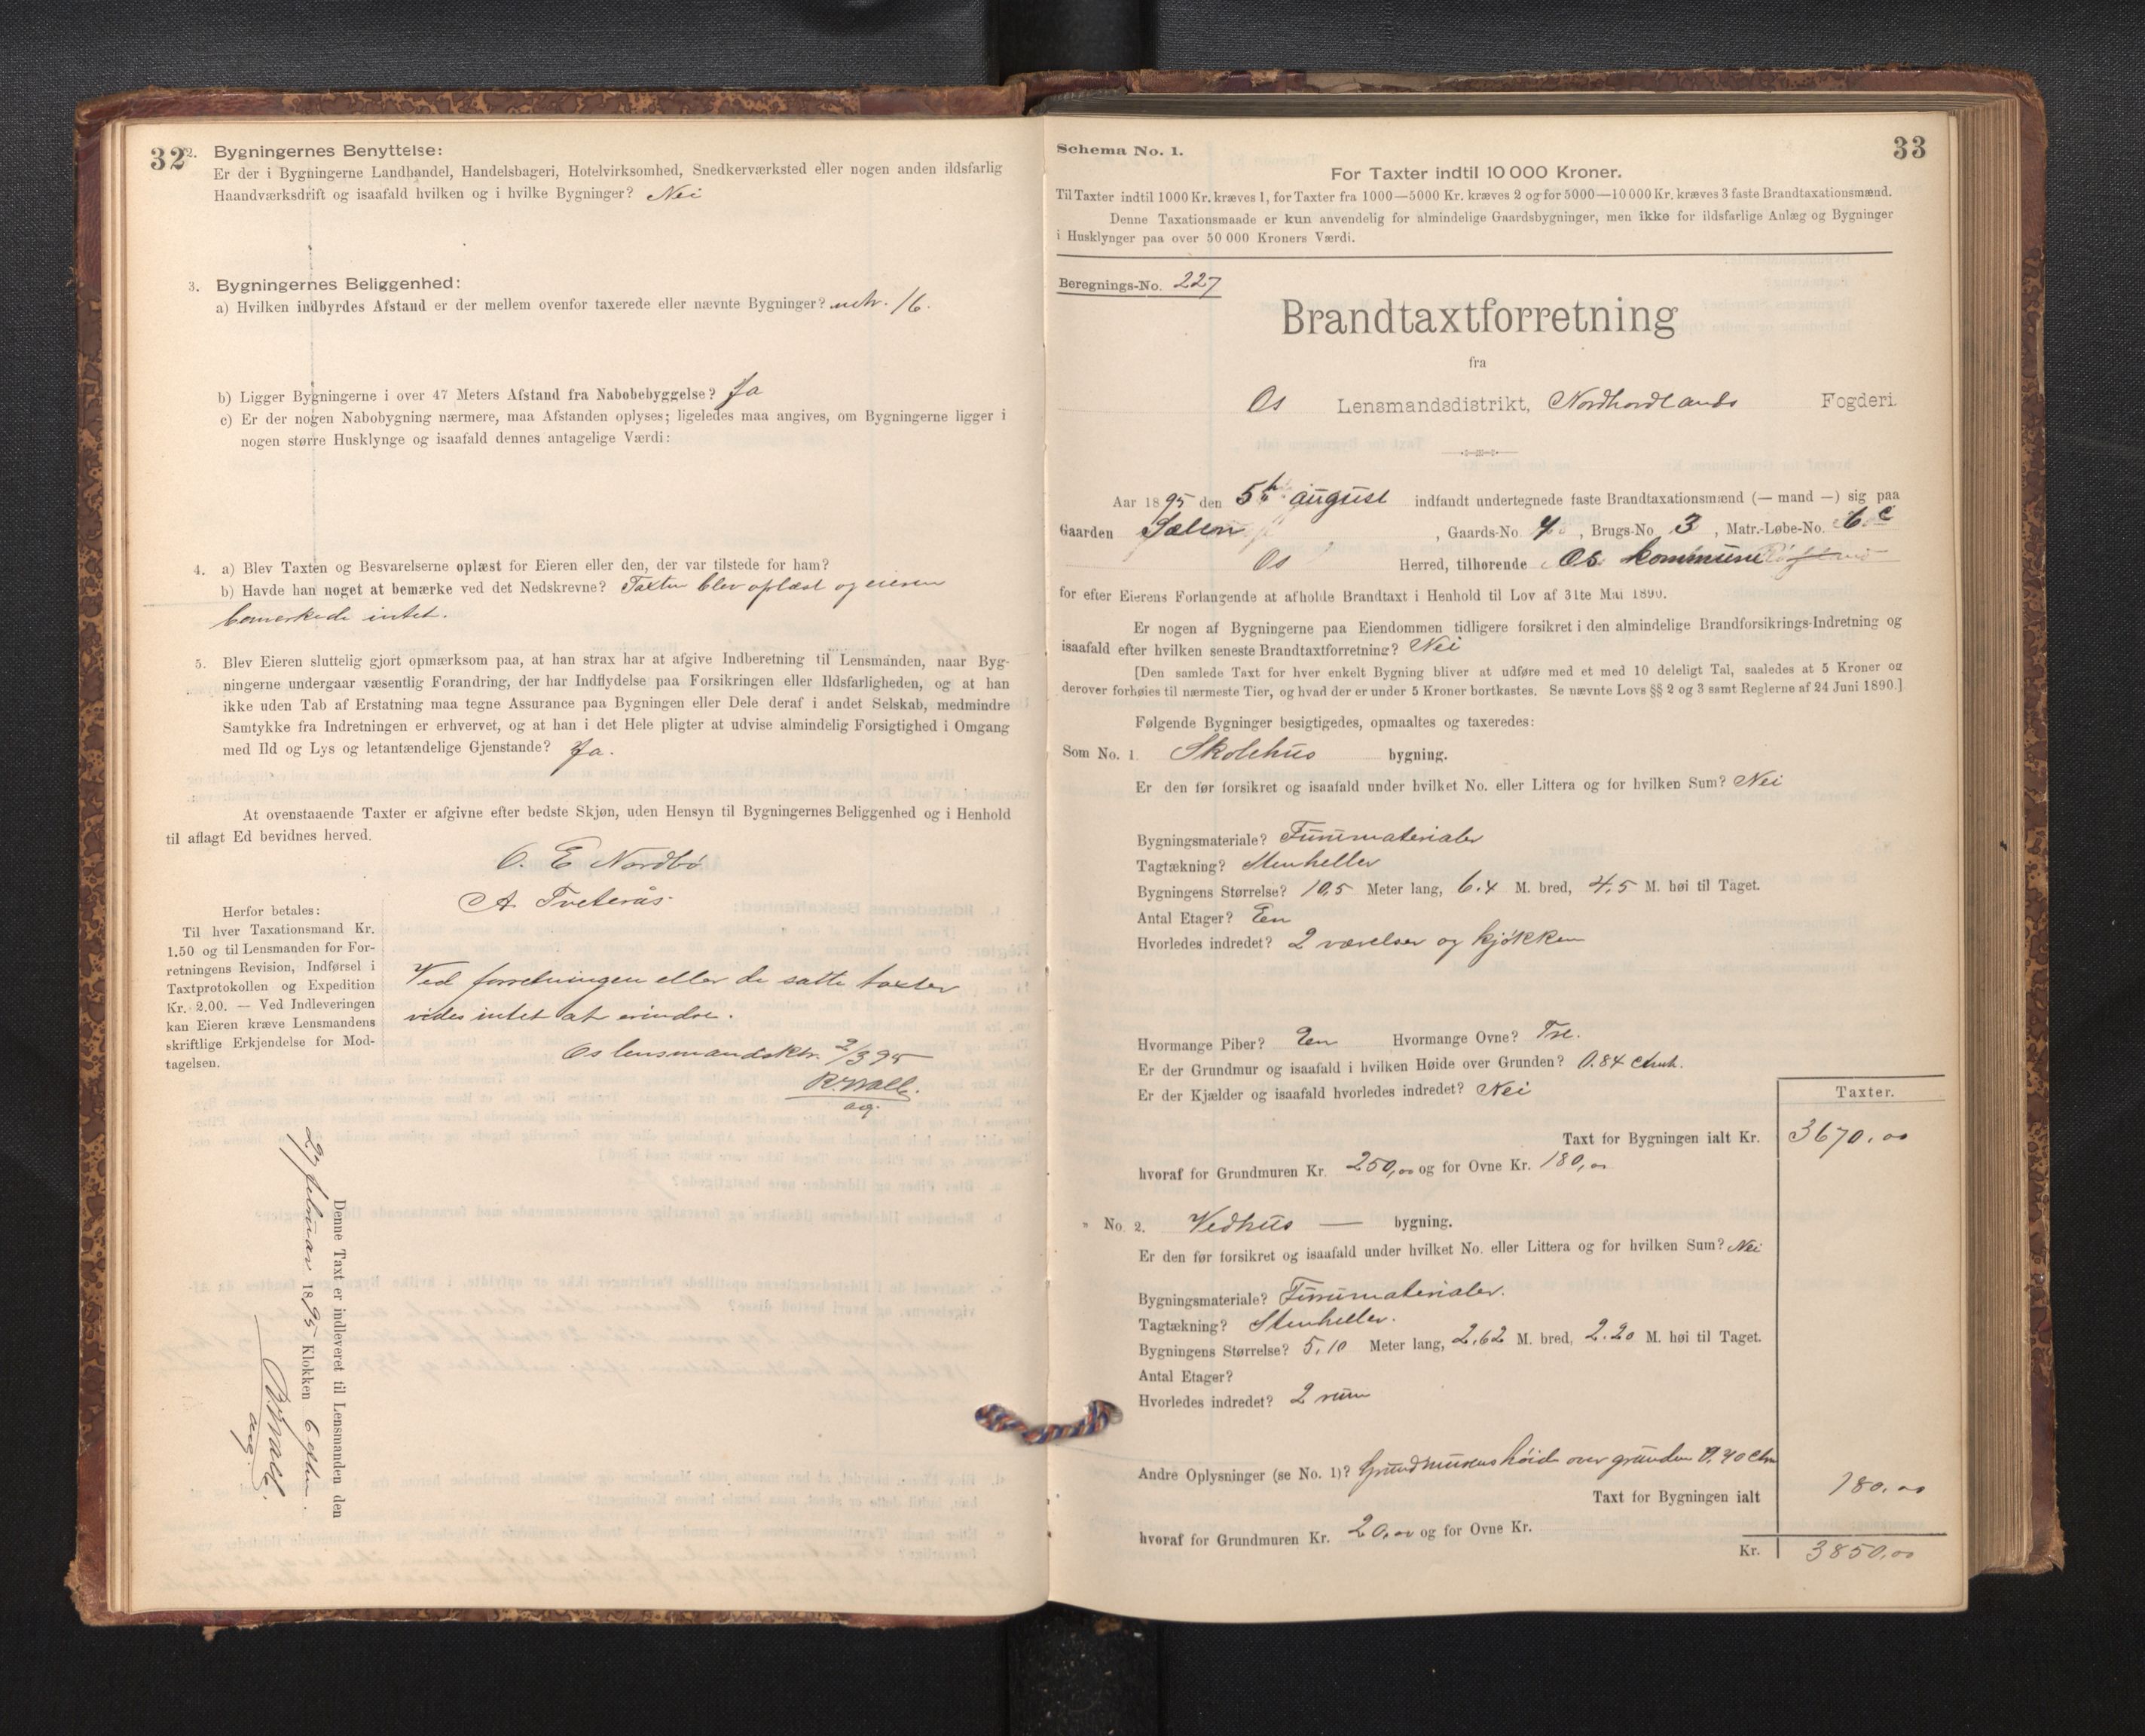 32
2. Bygningernes Benyttelse:
Er der i Bygningerne Landhandel, Handelsbageri, Hotelvirksomhed, Snedkerværksted eller nogen anden ildsfarlig
Haandværksdrift og isaafald hvilken og i hvilke Bygninger? Nei
3. Bygningernes Beliggenhed:
a) Hvilken indbyrdes Afstand er der mellem ovenfor taxerede eller nævnte Bygninger? mtr. 16.
b) Ligger Bygningerne i over 47 Meters Afstand fra Nabobebyggelse? Ja
c) Er der nogen Nabobygning nærmere, maa Afstanden oplyses; ligeledes maa angives, om Bygningerne ligger i
nogen større Husklynge og isaafald dennes antagelige Værdi:
4. a) Blev Taxten og Besvarelserne oplæst for Eieren eller den, der var tilstede for ham?
b) Havde han noget at bemærke ved det Nedskrevne? Taxten blev oplæst og eieren
bemærkede intet.
5. Blev Eieren sluttelig gjort opmærksom paa, at han strax har at afgive Indberetning til Lensmanden, naar Byg-
ningerne undergaar væsentlig Forandring, der har Indflydelse paa Forsikringen eller Ildsfarligheden, og at han
ikke uden Tab af Erstatning maa tegne Assurance paa Bygningen eller Dele deraf i andet Selskab, medmindre
Samtykke fra Indretningen er erhvervet, og at han i det Hele pligter at udvise almindelig Forsigtighed i Omgang
med Ild og Lys og letantændelige Gjenstande? Ja.
At ovenstaaende Taxter er afgivne efter bedste Skjøn, uden Hensyn til Bygningernes Beliggenhed og i Henhold
til aflagt Ed bevidnes herved.
O. E Nordbö
A. Tveterås
Herfor betales:
Til hver Taxationsmand Kr.
1.50 og til Lensmanden for For-
retningens Revision, Indførsel i
Taxtprotokollen og Expedition
Kr. 2.00. — Ved Indleveringen
kan Eieren kræve Lensmandens
skriftlige Erkjendelse for Mod-
tagelsen.
Ved forretningen eller de satte taxter
vides intet at erindre.
Os lensmandsktr. 2/3 95
ag.
Denne Taxt er indleveret til Lensmanden den
27 februar 1895 Klokken 6 eftm.
ag.
33
Schema No. 1.
For Taxter indtil 10 000 Kroner.
Til Taxter indtil 1000 Kr. kræves 1, for Taxter fra 1000—5000 Kr. kræves 2 og for 5000—10 000 Kr. kræves 3 faste Brandtaxationsmænd.
Denne Taxationsmaade er kun anvendelig for almindelige Gaardsbygninger, men ikke for ildsfarlige Anlæg og Bygninger
i Husklynger paa over 50 000 Kroners Værdi.
Beregnings-No. 227
Brandtaxtforretning
fra
Os Lensmandsdistrikt, Nordhordlands Fogderi.
Aar 1895 den 5te august indfandt undertegnede faste Brandtaxationsmænd (— mand —) sig paa
Gaarden Sælen, Gaards-No. 4, Brugs-No 3, Matr.-Løbe-No. 6 c
Os Herred, tilhørende Os kommune
for efter Eierens Forlangende at afholde Brandtaxt i Henhold til Lov af 31te Mai 1890.
Er nogen af Bygningerne paa Eiendommen tidligere forsikret i den almindelige Brandforsikrings-Indretning og
isaafald efter hvilken seneste Brandtaxtforretning? Nei
[Den samlede Taxt for hver enkelt Bygning bliver at udføre med et med 10 deleligt Tal, saaledes at 5 Kroner og
derover forhøies til nærmeste Tier, og hvad der er under 5 Kroner bortkastes. Se nævnte Lovs §§ 2 og 3 samt Reglerne af 24 Juni 1890.]
Følgende Bygninger besigtigedes, opmaaltes og taxeredes:
Som No. 1. Skolehus bygning.
Er den før forsikret og isaafald under hvilket No. eller Littera og for hvilken Sum? Nei
Bygningsmateriale? Furumaterialer
Tagtækning? Stenheller
Bygningens Størrelse? 10,5 Meter lang, 6.4 M. bred, 4.5 M. høi til Taget.
Antal Etager? Een
Hvorledes indredet? 2 værelser og kjøkken
Hvormange Piber? Een Hvormange Ovne? Tre.
Er der Grundmur og isaafald i hvilken Høide over Grunden? 0.84 ctmtr.
Er der Kjælder og isaafald hvorledes indredet? Nei
Taxter.
Taxt for Bygningen ialt Kr. 3670,00
hvoraf for Grundmuren Kr. 250,00 og for Ovne Kr. 180,00
" No. 2. Vedhus — bygning.
Er den før forsikret og isaafald under hvilket No. eller Littera og for hvilken Sum? Nei
Bygningsmateriale? Furumaterialer.
Tagtækning? Stenheller.
Bygningens Størrelse? 5,10 Meter lang, 2,62 M. bred, 2.20 M. høi til Taget.
Antal Etager?
Hvorledes indredet? 2 rum
Andre Oplysninger (se No. 1)? Grundmurens høide over grunden 0,40 ctm
Taxt for Bygningen ialt 180,00
hvoraf for Grundmuren Kr. 20,00 og for Ovne Kr.
Kr. 3850,00